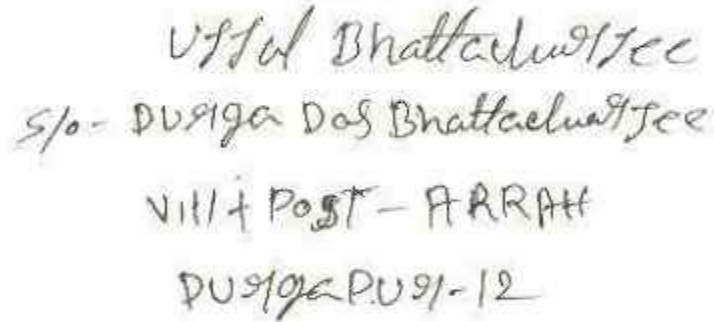 Bhattacharjee
S/o - Durga Das Bhattacharjee
Vill + Post - ARRAH
DurgaPur - 12